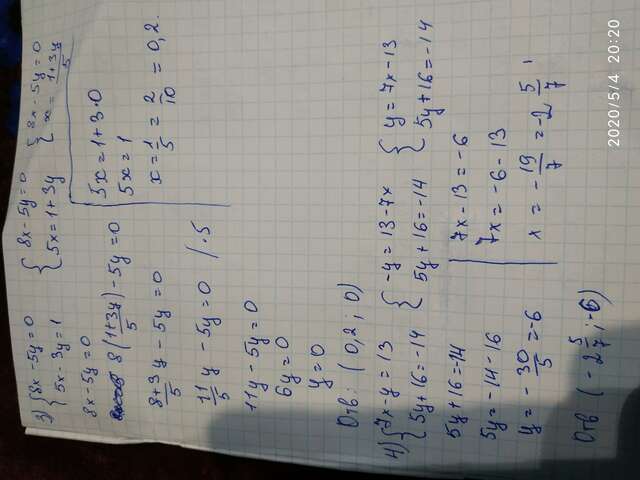 3) { 8x - 5y = 0
5x - 3y = 1
{ 8x - 5y = 0
5x = 1 + 3y
{ 8x - 5y = 0
x = (1+3y)/5
8x - 5y = 0
8 ((1+3y)/5) - 5y = 0
(8+3y)/5 - 5y = 0
11/5 y - 5y = 0 / ·5
11y - 5y = 0
6y = 0
y = 0
5x = 1 + 3·0
5x = 1
x = 1/5 = 2/10 = 0,2.
Отв: (0,2 ; 0)
4) { 7x - y = 13
5y + 16 = -14
{ -y = 13 - 7x
5y + 16 = -14
{ y = 7x - 13
5y + 16 = -14
5y + 16 = -14
5y = -14 - 16
y = - 30/5 = -6
7x - 13 = -6
7x = -6 - 13
x = - 19/7 = -2 5/7
Отв (-2 5/7 ; -6)
2020/5/4 20:20